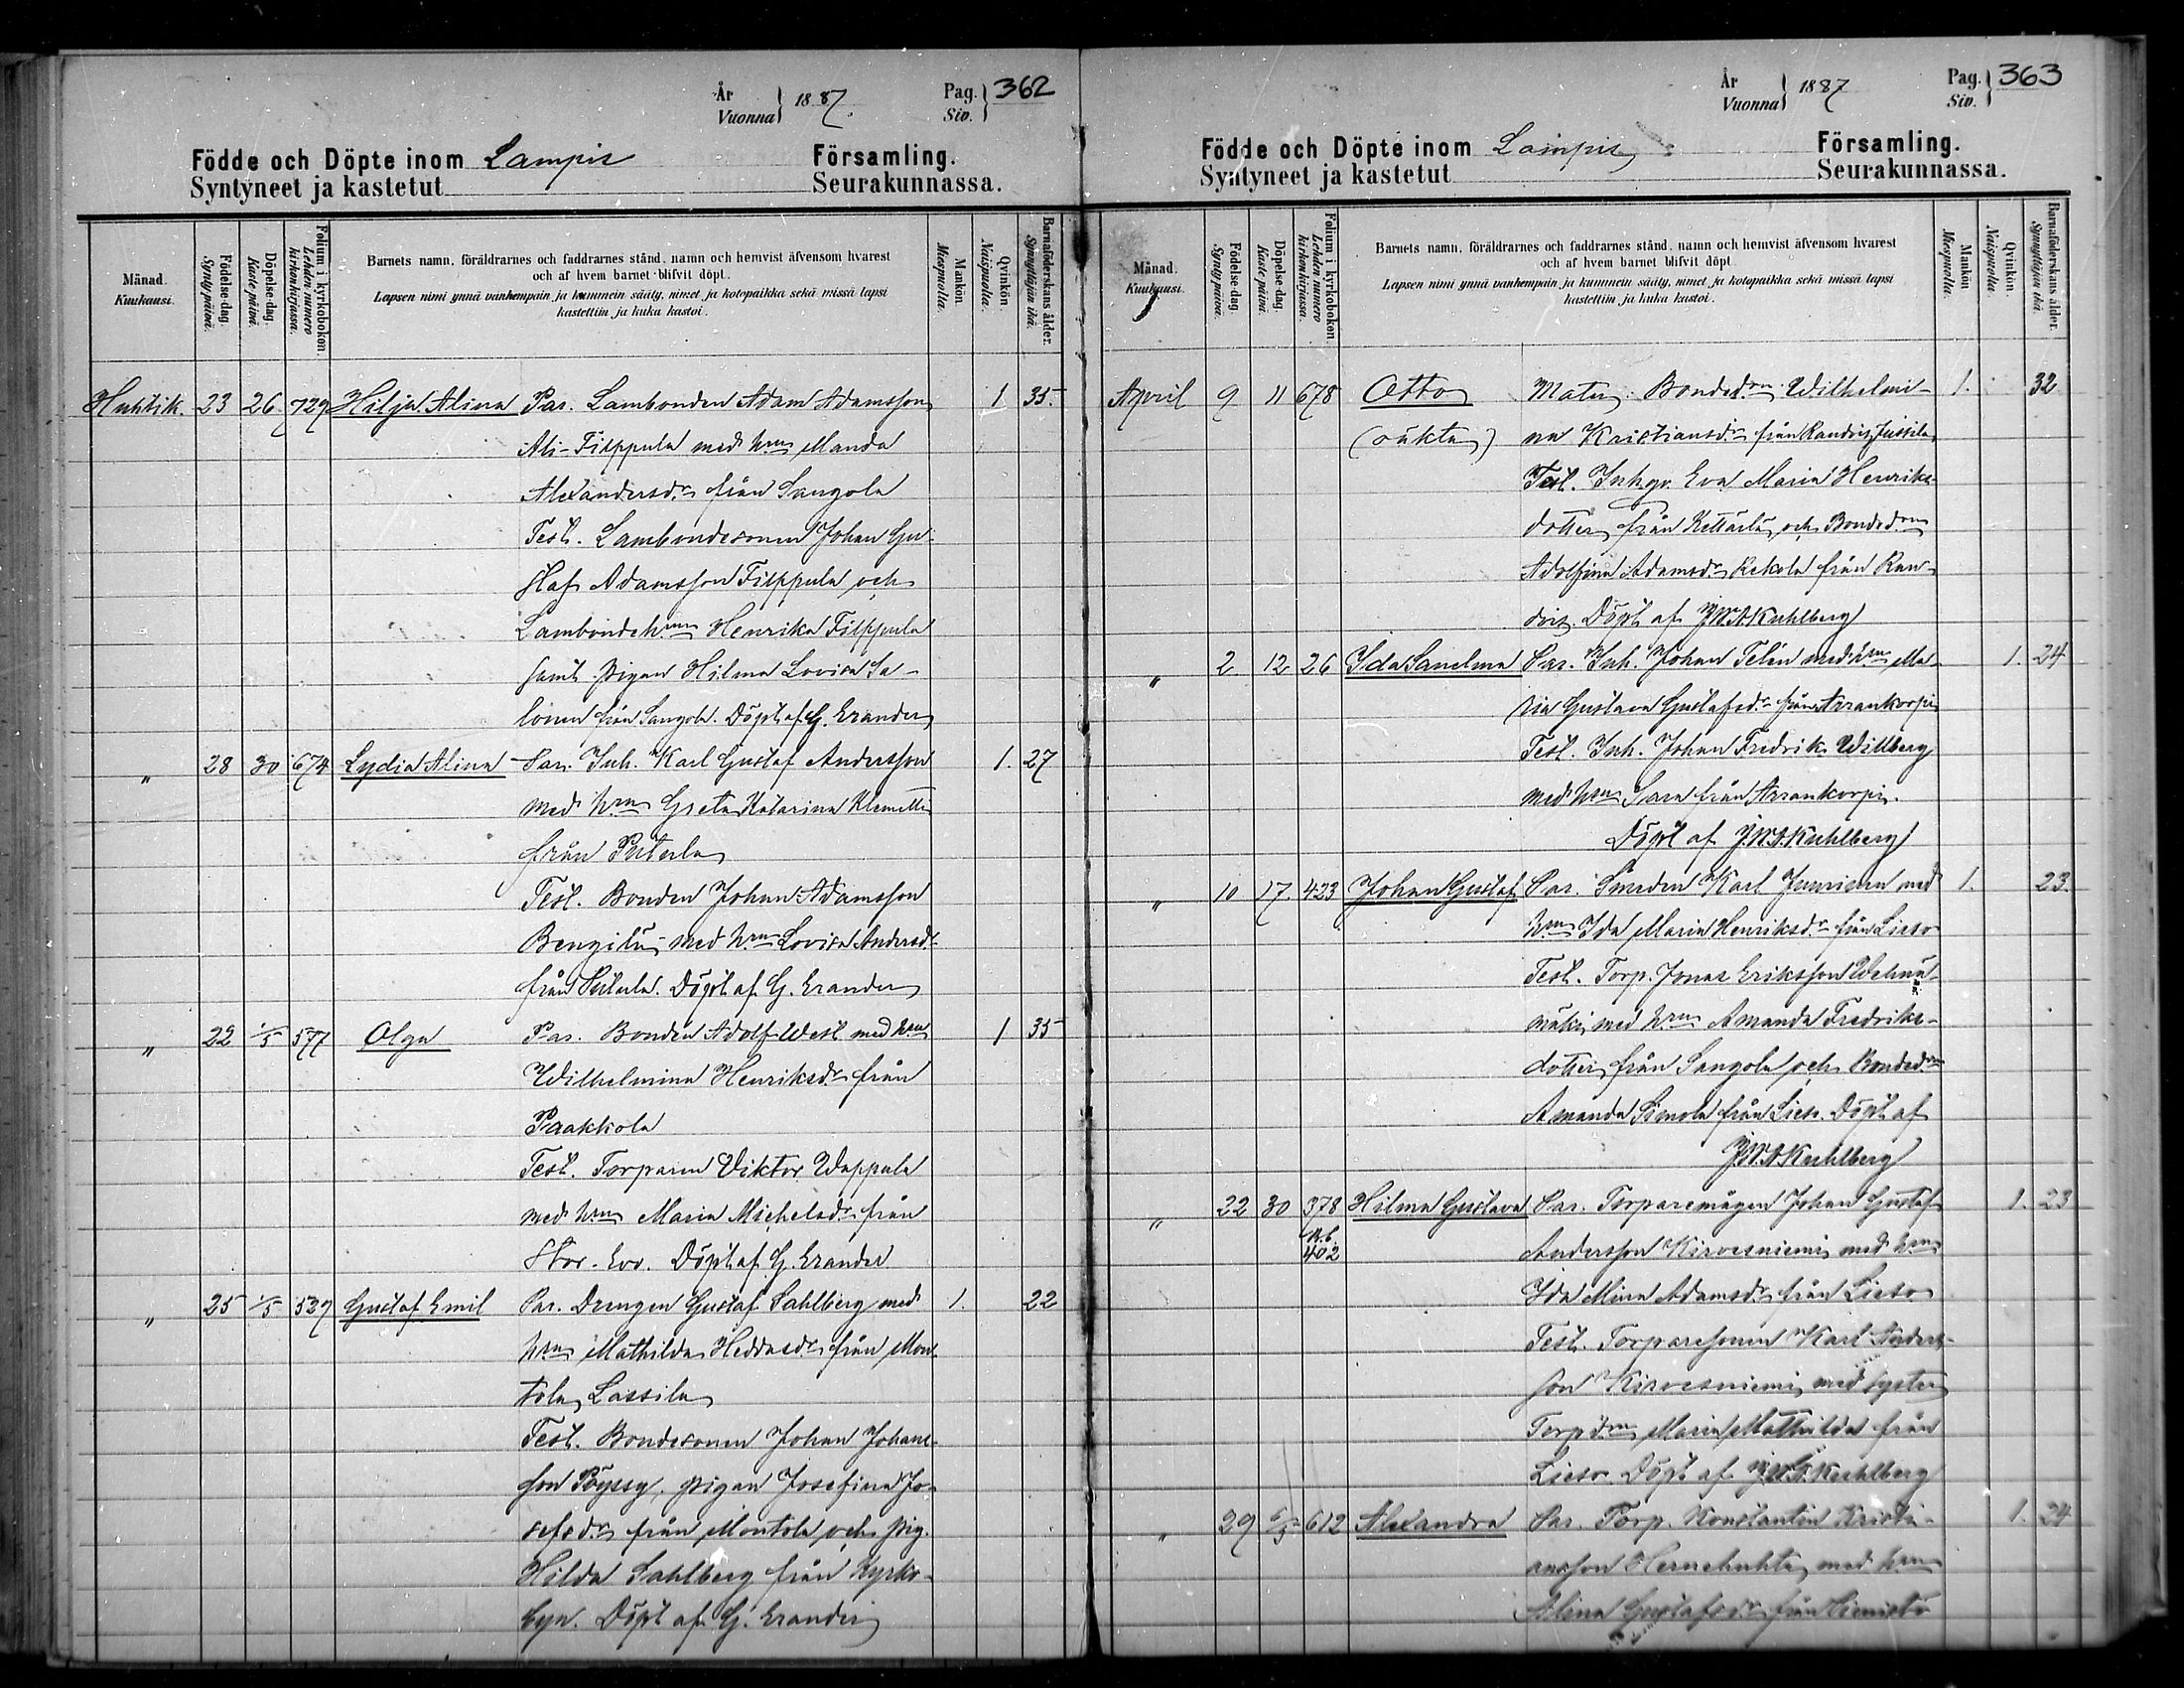 År Vuonna 1887. Pag. Siv. 362
Födde och Döpte inom Lampis Församling.
Syntyneet ja kastetut Seurakunnassa.
Månad. Kuukausi.
Födelse-dag. Syntypäivä.
Döpelse-dag. Kastepäivä.
Folium i kyrkobokon. Lehden numero kirkonkirjassa.
Barnets namn, föräldrarnes och faddrarnes stånd, namn och hemvist äfvensom hvarest
och af hvem barnet blifvit döpt.
Lapsen nimi ynnä vanhempain ja kummein sääty, nimet ja kotopaikka sekä missä lapsi
kastettiin ja kuka kastoi.
Mankön. Miespuolia.
Qvinkön. Naispuolia.
Barnaföderskans ålder. Synnyttäjän ikä.
Huhtik. 23 26 729 Hilja Alina Par. Lambonden Adam Adamsson 1 35.
Ali-Filppula med hrn Manda
Alexandersdr från Sangola
Test. Lambondesonen Johan Gu-
staf Adamsson Filppula och
Lambondehrn Henrika Filppula
samt pigan Hilma Lovisa Sa-
lonen från Sangola. Döpt af G. Erander
" 28 30 674 Lydia Alina Par. Inh. Karl Gustaf Andersson 1. 27
med hrn Greta Katarina Klemetti
från Päterla
Test. Bonden Johan Adamsson
Bengilä med hrn Lovisa Andersdr
från Päterla. Döpt af G. Erander
" 22 1/5 577 Olga Par. Bonden Adolf West med hrn 1 35
Wilhelmina Henriksdr från
Paakkola
Test. Torparen Viktor Wappula
med hrn Maria Michelsdr från
Stor-Evo. Döpt af G. Erander
" 25 1/5 529 Gustaf Emil Par. Drengen Gustaf Sahlberg med 1. 22
hrn Mathilda Heddasdr från Mon-
tola, Lassila
Test. Bondesonen Johan Johans-
son Pöyssy, pigan Josefina Jo-
sefsdr från Montola och pig.
Hilda Sahlberg från Kyrko-
byn. Döpt af G. Erander
År Vuonna 1887 Pag. Siv. 363
Födde och Döpte inom Lampis Församling.
Syntyneet ja kastetut Seurakunnassa.
Månad. Kuukausi.
Födelse-dag. Syntypäivä.
Döpelse-dag. Kastepäivä.
Folium i kyrkobokon. Lehden numero kirkonkirjassa.
Barnets namn, föräldrarnes och faddrarnes stånd, namn och hemvist äfvensom hvarest
och af hvem barnet blifvit döpt.
Lapsen nimi ynnä vanhempain ja kummein sääty, nimet ja kotopaikka sekä missä lapsi
kastettiin ja kuka kastoi.
Mankön. Miespuolia.
Qvinkön. Naispuolia.
Barnaföderskans ålder. Synnyttäjän ikä.
April 9 11 678 Otto Mater: Bondedrn Wilhelmi- 1. 32
(oäkta) na Kristiansdr från Jussila
Test. Inhgr. Eva Maria Henriks-
dotter från Kettärlä och Bondedrn
Adolfina Adamsdr Kekola från
Döpt af J.W.A. Kuhlberg
" 2 12 26 Ida Sanelma Par. Inh. Johan Telén med hrn Ma- 1. 24
ria Gustava Gustafsdr från Arrankorpi
Test. Inh. Johan Fredrik Willberg
med hrn Sara från Arrankorpi.
Döpt af J.W.A. Kuhlberg
" 10 17. 423 Johan Gustaf Par. Smeden Karl med 1. 23.
hrn Ida Maria Henriksdr från Lieso
Test. Torp. Jonas Eriksson Wehnä-
mäki med hrn Amanda Fredriks-
dotter från Sangola och Bondedrn
Amanda Simola från Lieso. Döpt af
J.W.A. Kuhlberg
" 22 30 378 Hilma Gustava Par. Torparemågen Johan Gustaf 1. 23
N.b. 402 Andersson Kirvesniemi med hrn
Ida Mina Adamsdr från Lieso
Test. Torparesonen Karl Anders-
son Kirvesniemi med syster
Torpdrn Maria Mathilda från
Lieso. Döpt af J.W.A. Kuhlberg
" 29 5/5 612 Alexandra Par. Torp. Konstantin Kristi- 1. 24
ansson Hernehuhta med hrn
Alina Gustafsdr från